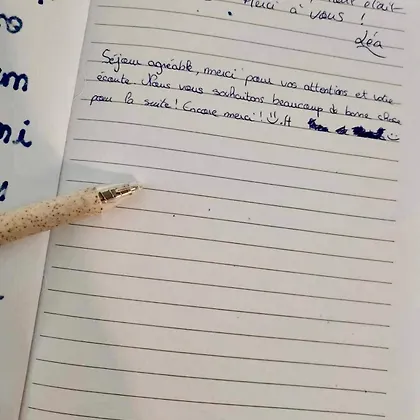 était
Merci à vous !
Léa
Séjour agréable, merci pour vos attentions et votre
écoute. Nous vous souhaitons beaucoup de bonne chose
pour la suite ! Encore merci ! ☺